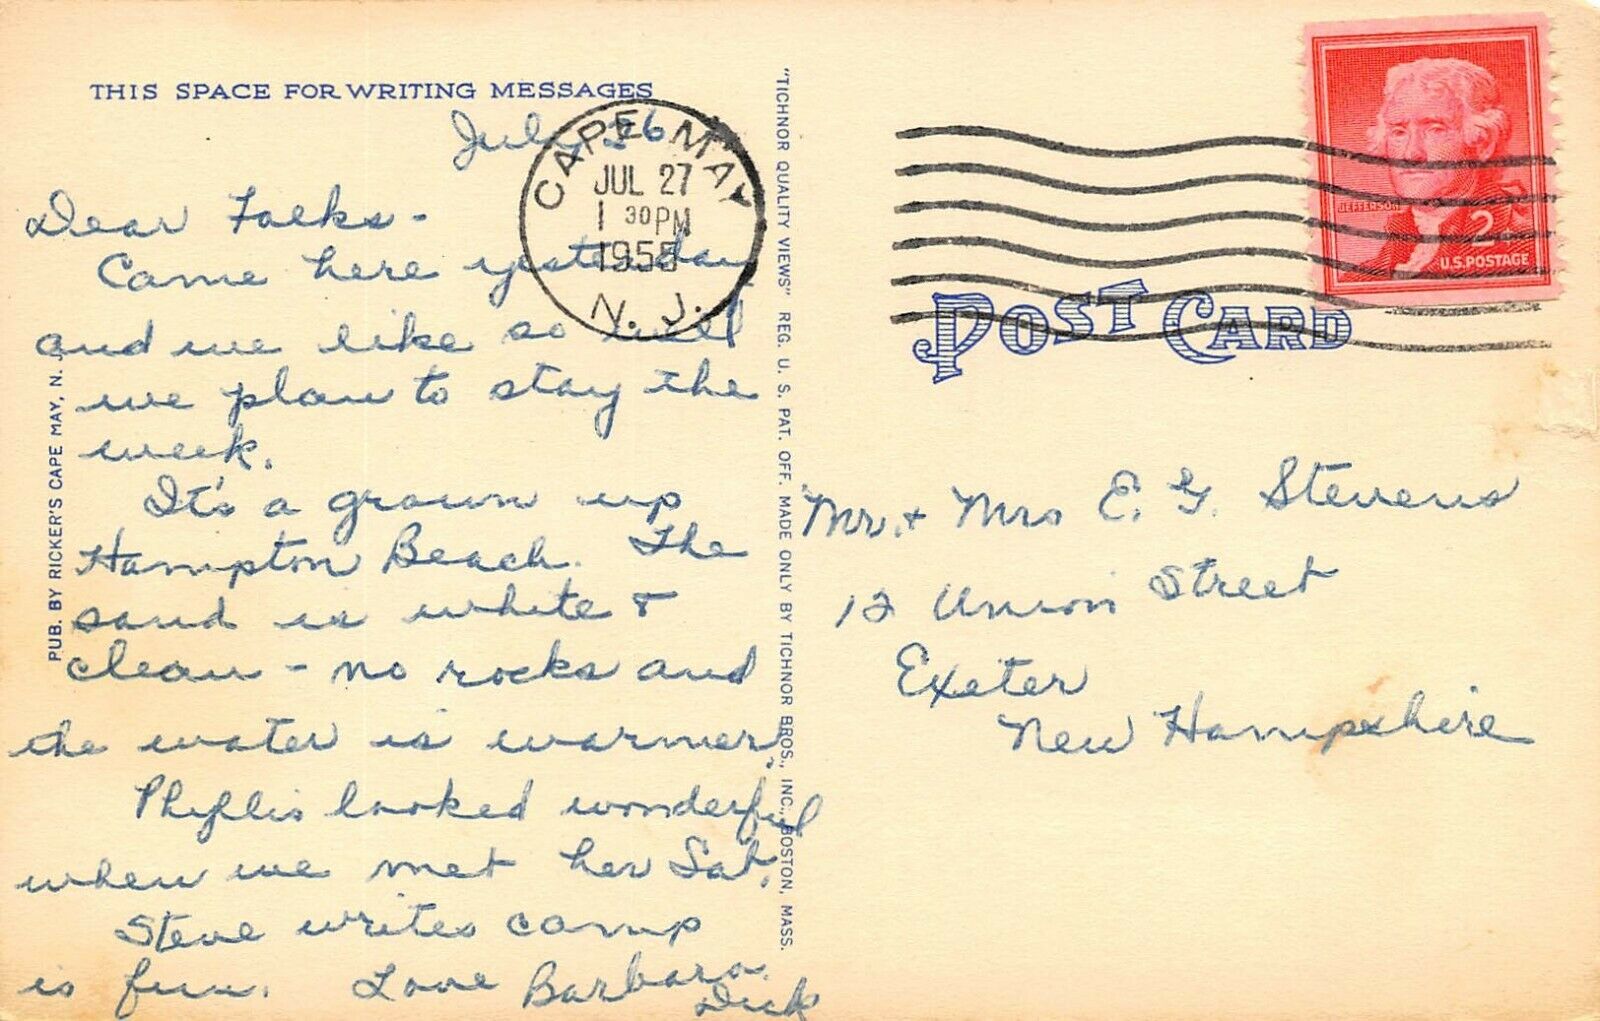 THIS SPACE FOR WRITING MESSAGES
July 26
Dear Folks-
Came here yesterday
and we like so well
we plan to stay the
week.
It's a grown up
Hampton Beach. The
sand is white &
clean - no rocks and
the water is warmer.
Phyllis looked wonderful
when we met her Sat.
Steve writes camp
is fun. Love Barbara
Dick
PUB. BY RICKER'S CAPE MAY, N. J.
"TICHNOR QUALITY VIEWS" REG. U. S. PAT. OFF. MADE ONLY BY TICHNOR BROS., INC., BOSTON, MASS.
CAPE MAY
JUL 27
1 30 PM
1955
N. J.
JEFFERSON
2
U.S. POSTAGE
POST CARD
Mr. + Mrs E. G. Stevens
12 Union Street
Exeter
New Hampshire